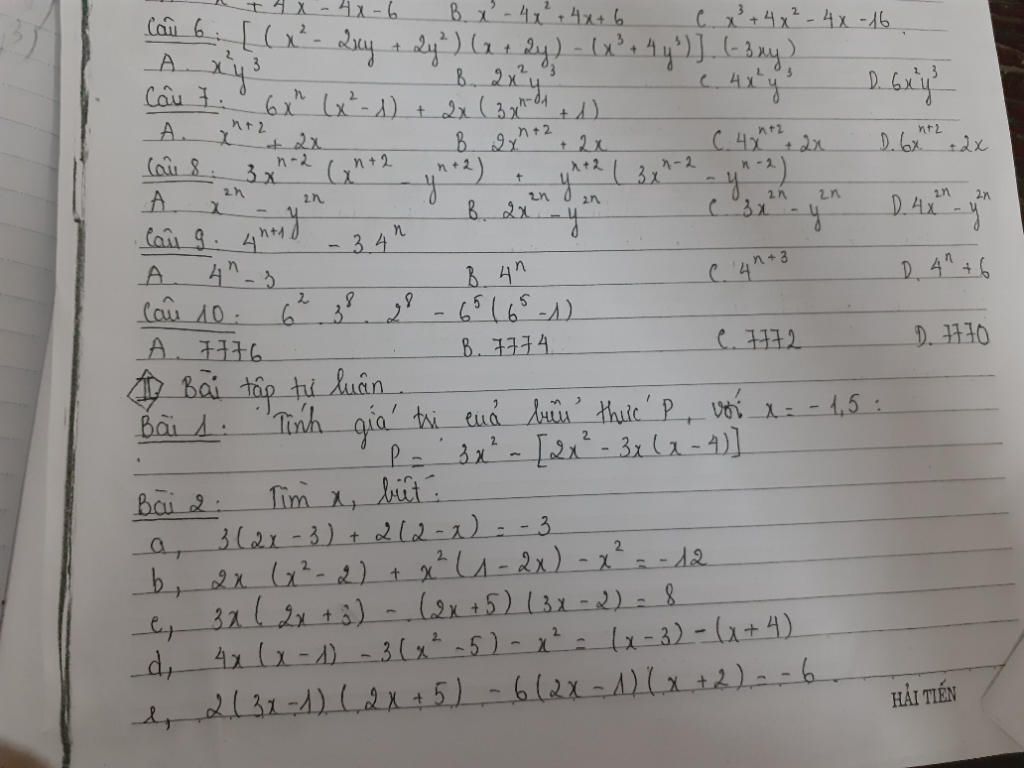 x + 4x - 4x - 6 B. x³ - 4x² + 4x + 6 C. x³ + 4x² - 4x - 16
Câu 6: [(x² - 2xy + 2y²)(x + 2y) - (x³ + 4y³)] . (-3xy)
A. x²y³ B. 2x²y³ C. 4x²y³ D. 6x²y³
Câu 7: 6xⁿ (x² - 1) + 2x (3xⁿ⁻¹ + 1)
A. xⁿ⁺² + 2x B. 2xⁿ⁺² + 2x C. 4xⁿ⁺² + 2x D. 6xⁿ⁺² + 2x
Câu 8: 3xⁿ⁻² (xⁿ⁺² - yⁿ⁺²) + yⁿ⁺² (3xⁿ⁻² - yⁿ⁻²)
A. x²ⁿ - y²ⁿ B. 2x²ⁿ - y²ⁿ C. 3x²ⁿ - y²ⁿ D. 4x²ⁿ - y²ⁿ
Câu 9: 4ⁿ⁺¹ - 3.4ⁿ
A. 4ⁿ - 3 B. 4ⁿ C. 4ⁿ⁺³ D. 4ⁿ + 6
Câu 10: 6² . 3⁸ . 2⁸ - 6⁵ (6⁵ - 1)
A. 7776 B. 7774 C. 7772 D. 7770
II Bài tập tự luân.
Bài 1: Tính giá trị cuả biểu thức P, với x = -1,5 :
P = 3x² - [2x² - 3x (x - 4)]
Bài 2: Tìm x, biết:
a, 3(2x - 3) + 2(2 - x) = -3
b, 2x (x² - 2) + x² (1 - 2x) - x² = -12
c, 3x( 2x + 3) - (2x + 5) (3x - 2) = 8
d, 4x (x - 1) - 3(x² - 5) - x² = (x - 3) - (x + 4)
e, 2 (3x - 1) ( 2x + 5) - 6 (2x - 1) (x + 2) = -6 .
HẢI TIẾN